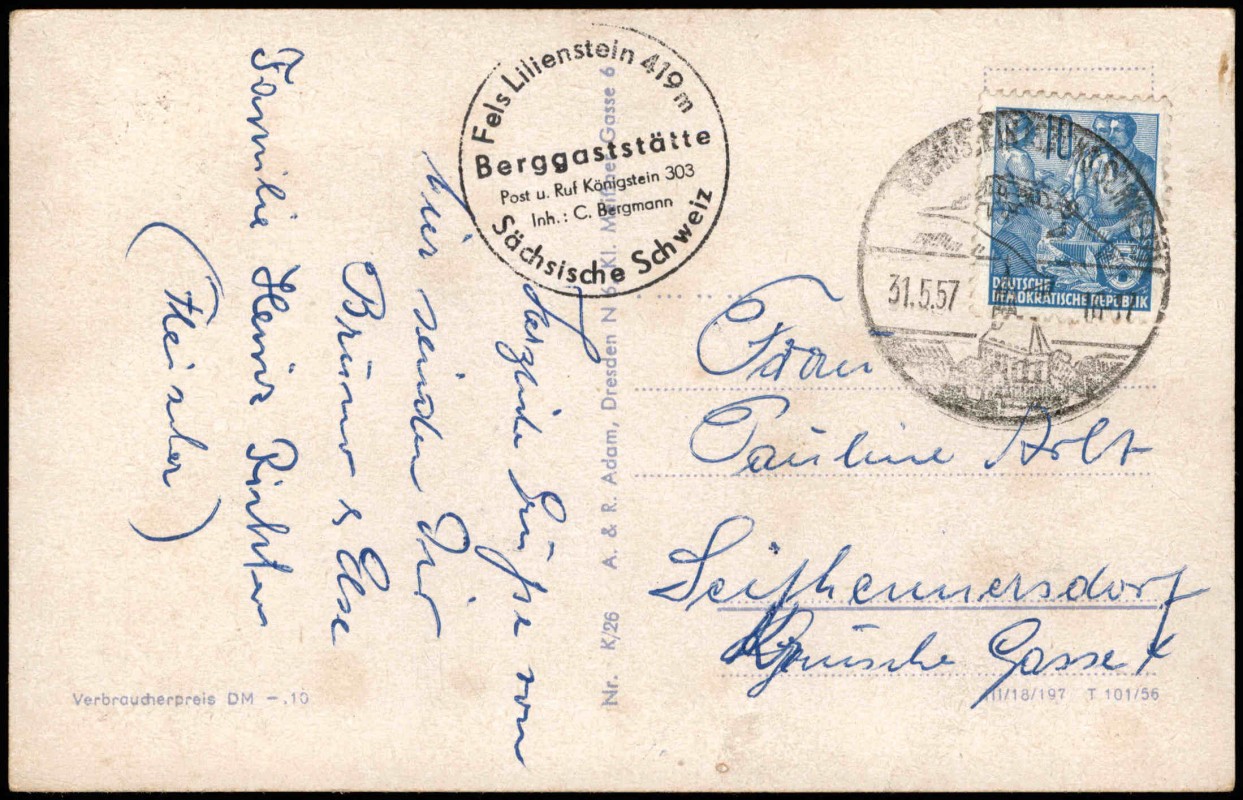 Fels Lilienstein 419 m
Berggaststätte
Post u. Ruf Königstein 303
Inh.: C. Bergmann
Sächsische Schweiz
Herzliche Grüße von
hier senden Dir
Bruno & Else
Familie Heinz Richter
(Fleischer)
Nr. K/26 A. & R. Adam, Dresden N 6, Kl. Meißner Gasse 6
Verbraucherpreis DM -.10
10
DEUTSCHE
DEMOKRATISCHE REPUBLIK
31.5.57
Frau
Pauline Arlt
Seifhennersdorf
Gasse
III/18/197 T 101/56